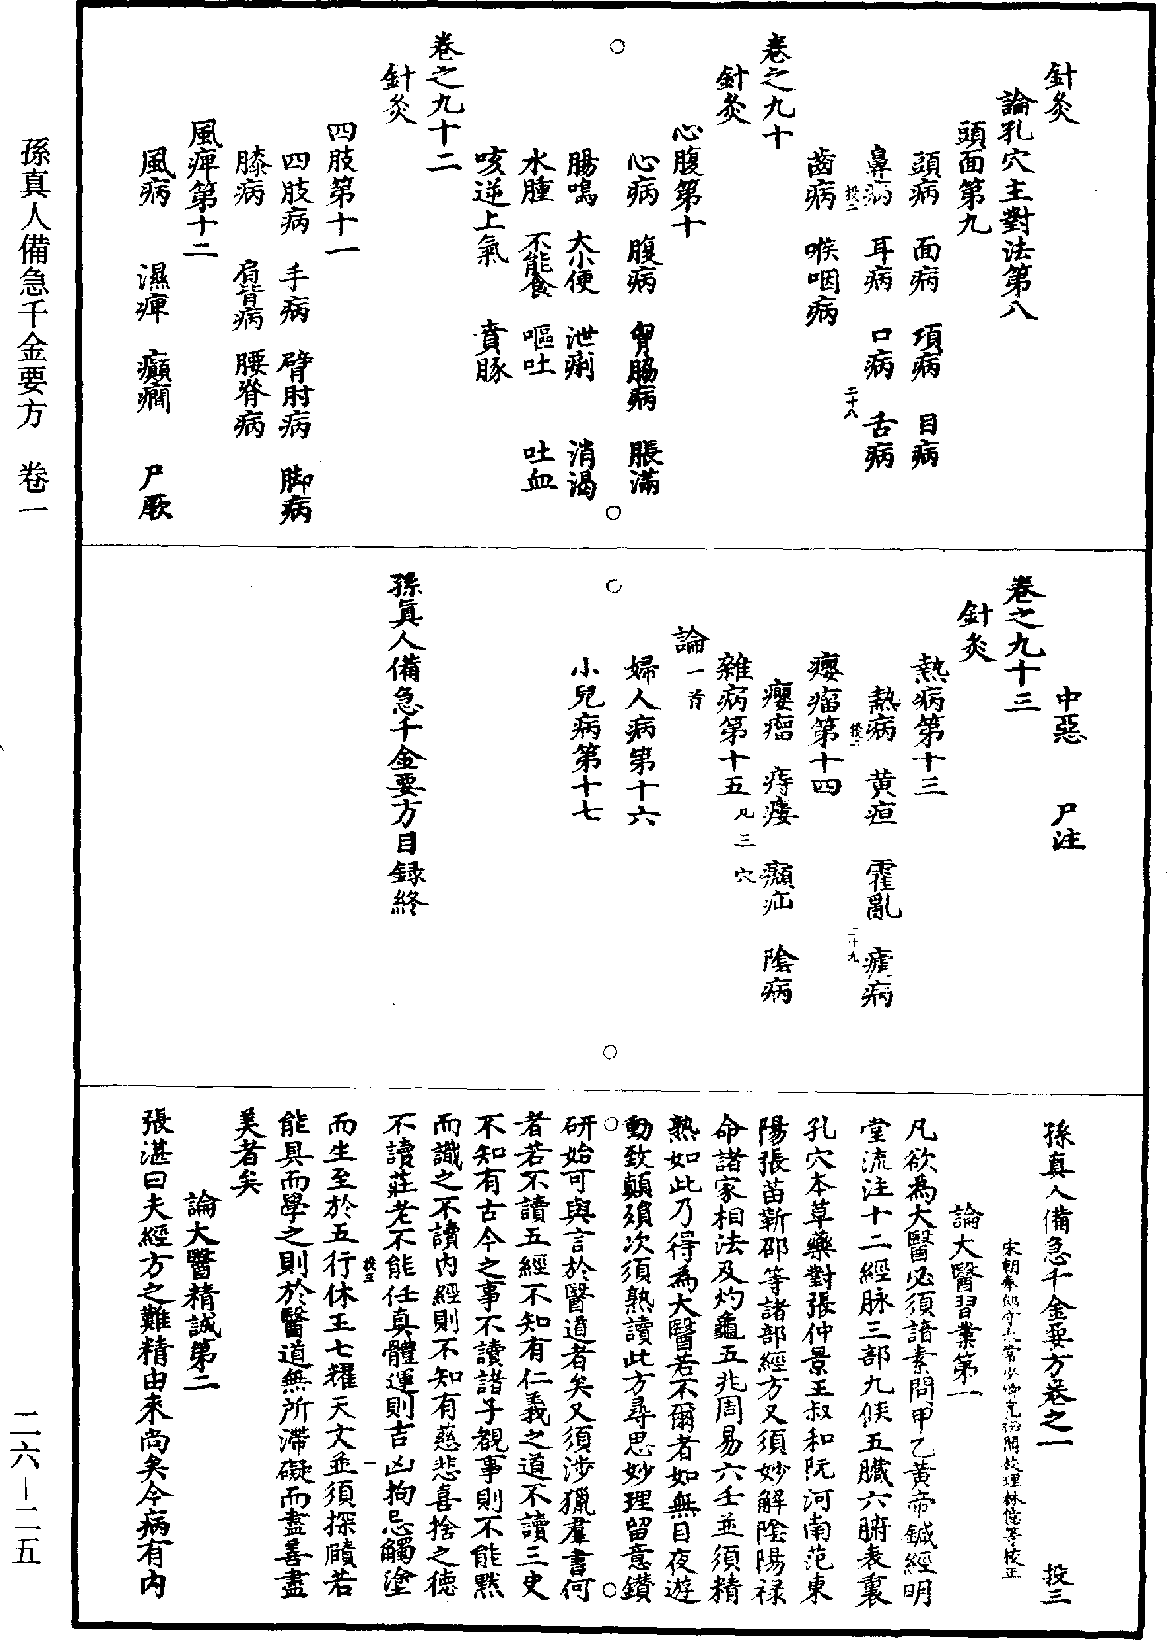 針灸
論孔穴主對法第八
頭面第九
頭病　面病　項病　目病
鼻病　耳病　口病　舌病
投二　二十八
齒病　喉咽病
卷之九十
針灸
心腹第十
心病　腹病　胷脇病　脹滿
腸鳴　大小便　泄痢　消渴
水腫　不能食　嘔吐　吐血
咳逆上氣　賁豚
卷之九十二
針灸
四肢第十一
四肢病　手病　臂肘病　脚病
膝病　肩背病　腰脊病
風痺第十二
風病　濕痺　癲癇　尸厥
中惡　尸注
卷之九十三
針灸
熱病第十三
熱病　黄疸　霍亂　瘧病
投二　二十九
癭瘤第十四
癭瘤　痔瘻　㿗疝　陰病
雜病第十五　凡三穴
論一首
婦人病第十六
小兒病第十七
孫真人備急千金要方目録終
孫真人備急千金要方卷之一　投三
宋朝奉郎守太常少卿充祕閣校理林億等校正
論大醫習業第一
凡欲為大醫必須諳素問甲乙黄帝鍼經明
堂流注十二經脉三部九候五臟六腑表裏
孔穴本草藥對張仲景王叔和阮河南范東
陽張苗靳邵等諸部經方又須妙解陰陽禄
命諸家相法及灼龜五兆周易六壬並須精
熟如此乃得為大醫若不爾者如無目夜遊
動致顛殞次須熟讀此方尋思妙理留意鑽
研始可與言於醫道者矣又須涉獵羣書何
者若不讀五經不知有仁義之道不讀三史
不知有古今之事不讀諸子覩事則不能黙
而識之不讀内經則不知有慈悲喜捨之德
不讀莊老不能任真體運則吉凶拘忌觸塗
投三　一
而生至於五行休王七耀天文並須探賾若
能具而學之則於醫道無所滯礙而盡善盡
美者矣
論大醫精誠第二
張湛曰夫經方之難精由來尚矣今病有内
孫真人備急千金要方　卷一
二六－二五